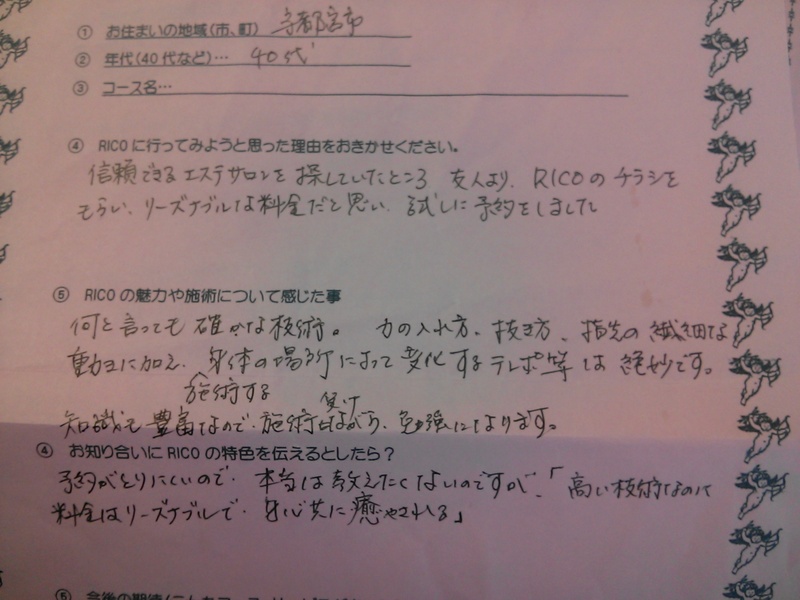 ① お住まいの地域(市、町) 宇都宮市
② 年代(40代など)… 40代
③ コース名…
④ RICOに行ってみようと思った理由をおきかせください。
信頼できるエステサロンを探していたところ 友人より、RICOのチラシを
もらい、リーズナブルな料金だと思い、試しに予約をしました
⑤ RICOの魅力や施術について感じた事
何と言っても確かな技術。 力の入れ方、抜き方、指先の繊細な
動きに加え、身体の場所によって変化するテレポ等は絶妙です。
施術する 受け
知識も豊富なので、施術ながら、勉強になります。
④ お知り合いにRICOの特色を伝えるとしたら?
予約がとりにくいので、本当は教えたくないのですが、「高い技術なのに
料金はリーズナブルで、身心共に癒やされる」
⑤ 今後の期待